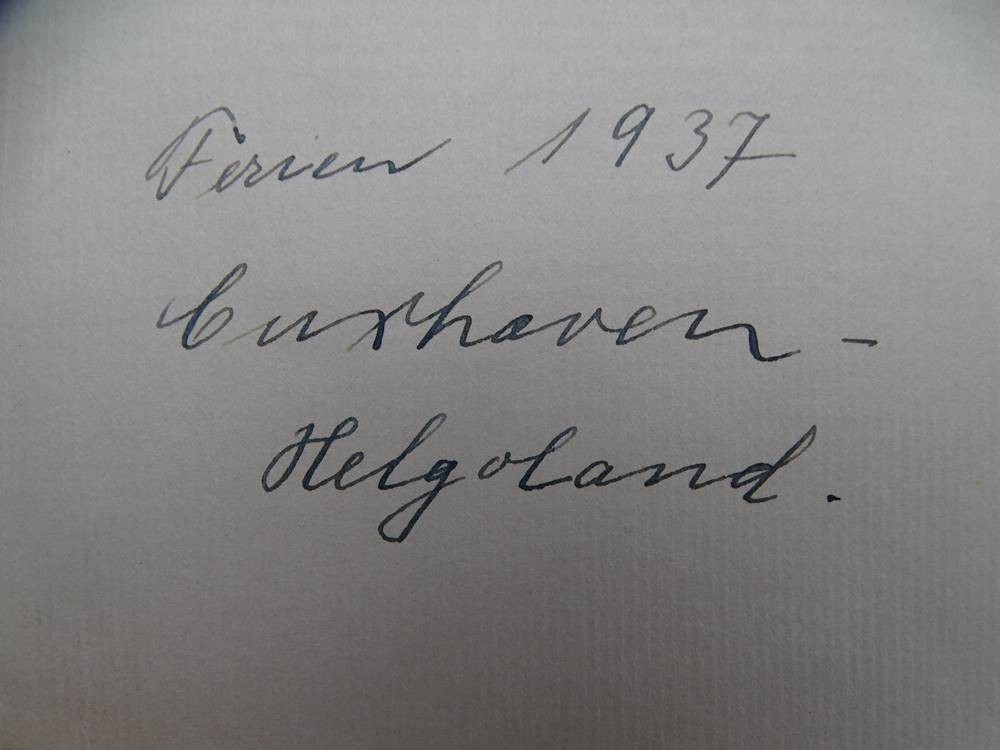 Ferien 1937
Cuxhaven -
Helgoland.